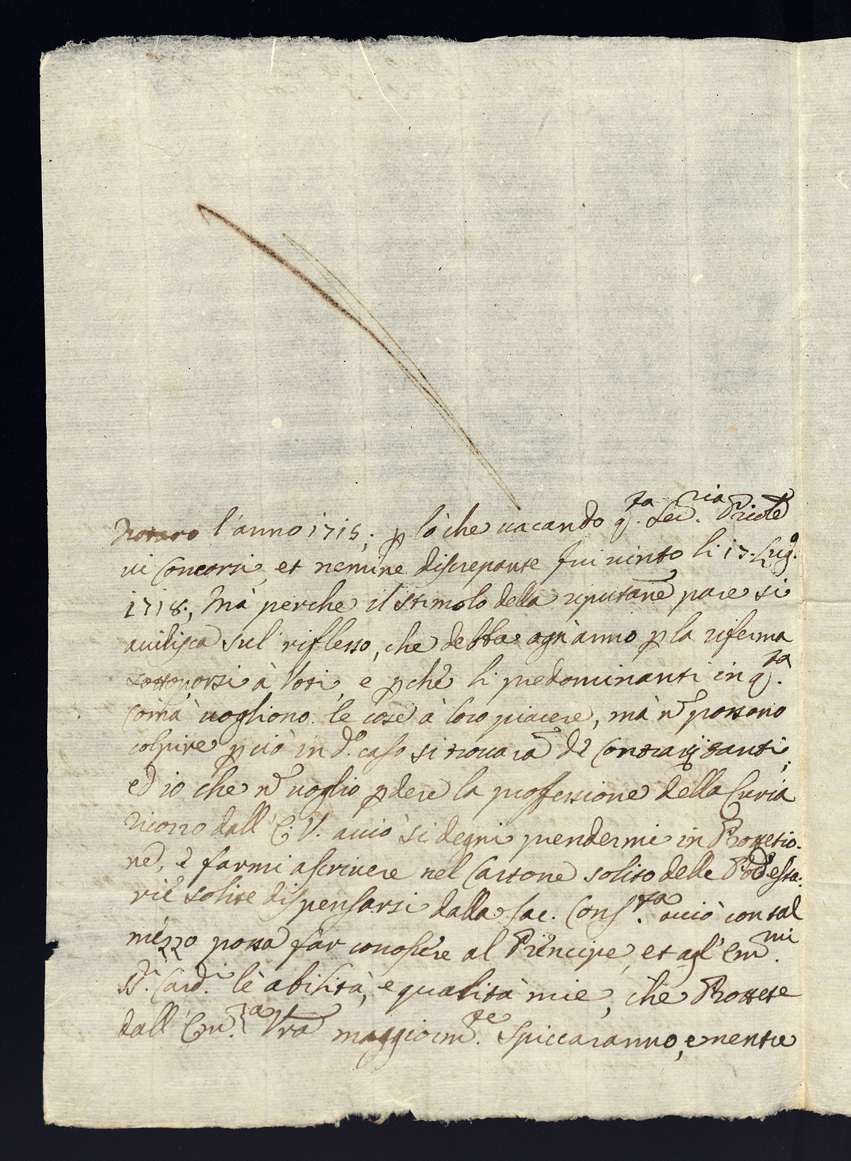 Notaro l'anno 1715; p lo che vacando q.ta Let.ria Pricle
vi Concorsi, et nemine discrepante fui vinto li 17 Lug.o
1718; Mà perche il stimolo della riputane pare si
avilisca sul riflesso, che debba ogn'anno p la riferma
sottoporsi à Voti, e pche li predominanti in q.ta
Comà vogliono le cose à loro piacere, mà n possono
colpire pciò in d.o caso si trovarà de Contrarizanti;
ed io che n voglio pdere la professione della Curia
ricorro dall'E.V. acciò si degni prendermi in Prottetio-
ne, e farmi ascrivere nel Cartone solito delle Podesta-
rie solite dispensarsi dalla Sac. Cons.ta acciò con tal
mezzo possa far conoscere al Principe, et agl'Em.mi
SS.ri Card.i le abilità, e qualità mie, che Prottete
dall'Em.za Vra maggiorm.te Spiccaranno, e mentre